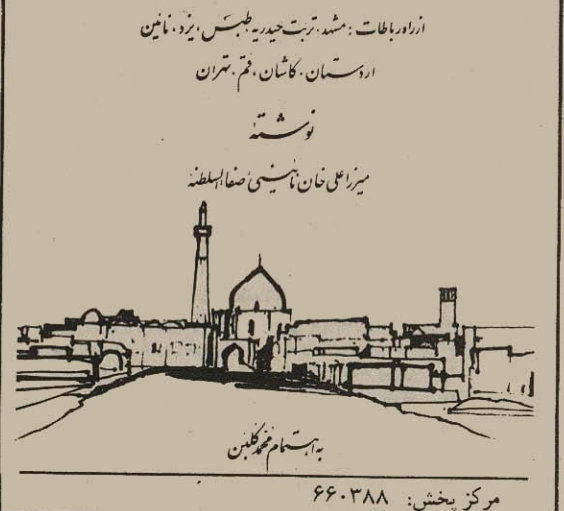 ازراه رباطات : مشهد، تربت حیدریه، طبس، یزد، نائین
اردستان، کاشان، قم، تهران
نوشتهٔ
میرزا علی خان نائینی، صفاءالسلطنه
به اهتمام محمد گلبن
مرکز پخش: ۶۶۰۳۸۸